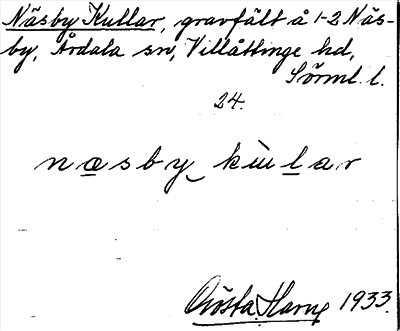 Näsby Kullar, gravfält å 1-2 Näs-
by, Årdala sn, Villåttinge hd,
Sörml. l.
24.
næsby kùlar
Gösta Harne 1933.